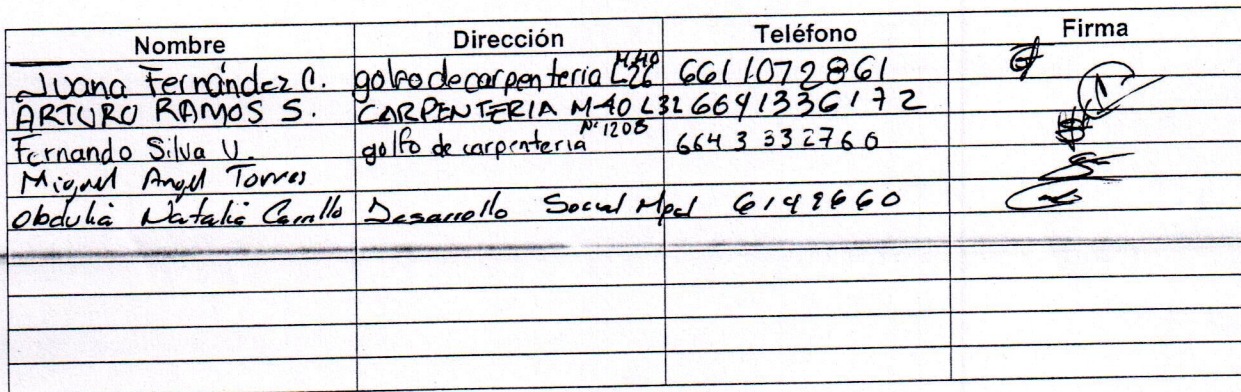 Nombre Dirección Teléfono Firma
Juana Fernández C. golfo de carpenteria M-40 L26 6611072861
ARTURO RAMOS S. CARPENTERIA M-40 L32 6641336172
Fernando Silva U. golfo de carpenteria N° 1208 6643332760
Miguel Angel Torres
Obdulia Natalia Carrillo Desarrollo Social Mpal 6149660